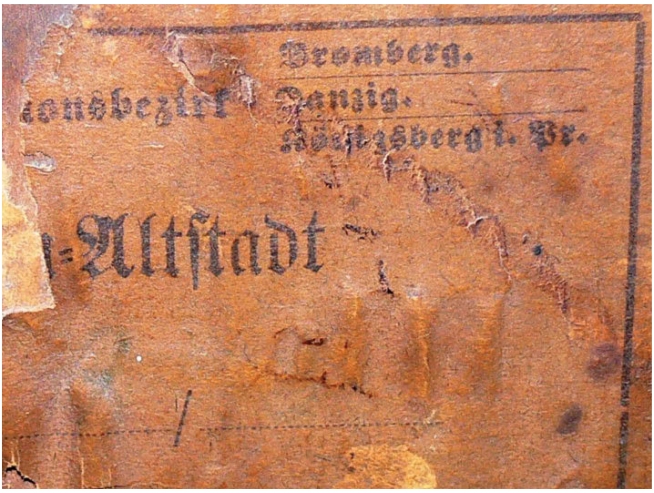 Bromberg.
onsbezirk Danzig.
Königsberg i. Pr.
=Altstadt
/